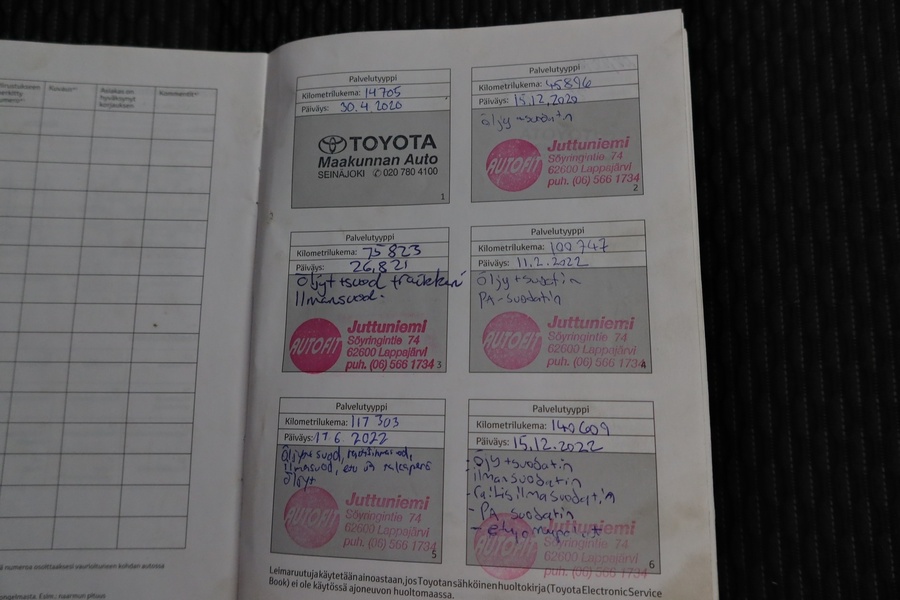 Kuvaus
Asiakas on
hyväksynyt
korjauksen
Kommentit
Palvelutyyppi
Kilometrilukema: 14705
Päiväys: 30.4.2020
TOYOTA
Maakunnan Auto
SEINÄJOKI ✆ 020 780 4100
1
Palvelutyyppi
Kilometrilukema: 45896
Päiväys: 15.12.2020
öljy+suodatin
AUTOFIT
Juttuniemi
Söyringintie 74
62600 Lappajärvi
puh. (06) 566 1734
2
Palvelutyyppi
Kilometrilukema: 75823
Päiväys: 26,8 21
Öljyt+suod
Ilmansuod.
AUTOFIT
Juttuniemi
Söyringintie 74
62600 Lappajärvi
puh. (06) 566 1734
3
Palvelutyyppi
Kilometrilukema: 100747
Päiväys: 11.2.2022
Öljy+suodatin
PA-suodatin
AUTOFIT
Juttuniemi
Söyringintie 74
62600 Lappajärvi
puh. (06) 566 1734
4
Palvelutyyppi
Kilometrilukema: 117303
Päiväys: 17 6. 2022
Öljyt+suod,
ilmasuod,
Öljyt
AUTOFIT
Juttuniemi
Söyringintie 74
62600 Lappajärvi
puh. (06) 566 1734
5
Palvelutyyppi
Kilometrilukema: 140609
Päiväys: 15.12.2022
-Öljy+suodatin
ilmansuodatin
-raitisilmasuodatin
- PA-suodatin
AUTOFIT
Juttuniemi
Söyringintie 74
62600 Lappajärvi
puh. (06) 566 1734
6
Leimaruutuja käytetään ainoastaan, jos Toyotan sähköinen huoltokirja (Toyota Electronic Service
Book) ei ole käytössä ajoneuvon huoltomaassa.